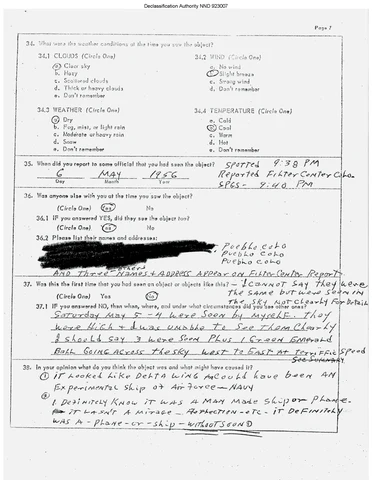 Declassification Authority NND 923007
Page 7
34. What were the weather conditions at the time you saw the object?
34.1 CLOUDS (Circle One)
a. Clear sky
b. Hazy
c. Scattered clouds
d. Thick or heavy clouds
e. Don't remember
34.2 WIND (Circle One)
a. No wind
b. Slight breeze
c. Strong wind
d. Don't remember
34.3 WEATHER (Circle One)
a. Dry
b. Fog, mist, or light rain
c. Moderate or heavy rain
d. Snow
e. Don't remember
34.4 TEMPERATURE (Circle One)
a. Cold
b. Cool
c. Warm
d. Hot
e. Don't remember
35. When did you report to some official that you had seen the object?
6 May 1956
Day Month Year
Spotted 9:38 PM
Reported Filter Center Colo
Spgs - 9:40 PM
36. Was anyone else with you at the time you saw the object?
(Circle One) Yes No
36.1 IF you answered YES, did they see the object too?
(Circle One) Yes No
36.2 Please list their names and addresses:
Pueblo Colo
Pueblo Colo
Pueblo Colo
And Three Names & Address Appear on Filter Center Report
37. Was this the first time that you had seen an object or objects like this? - I cannot say they were
(Circle One) Yes No
the same but were seen in
the sky not clearly for detail
37.1 IF you answered NO, then when, where, and under what circumstances did you see other ones?
Saturday May 5 - 4 were seen by myself. They
were high & I was unable to see them clearly
I should say 3 were seen plus 1 green emerald
ball going across the sky west to east at terrific speed
See summary
38. In your opinion what do you think the object was and what might have caused it?
① it looked like Delta Wing & could have been an
Experimental ship of Air Force - Navy
② I definitely know it was a man made ship or plane.
it wasn't a mirage - reflection - etc - it definitely
was a - plane - or - ship - without sound